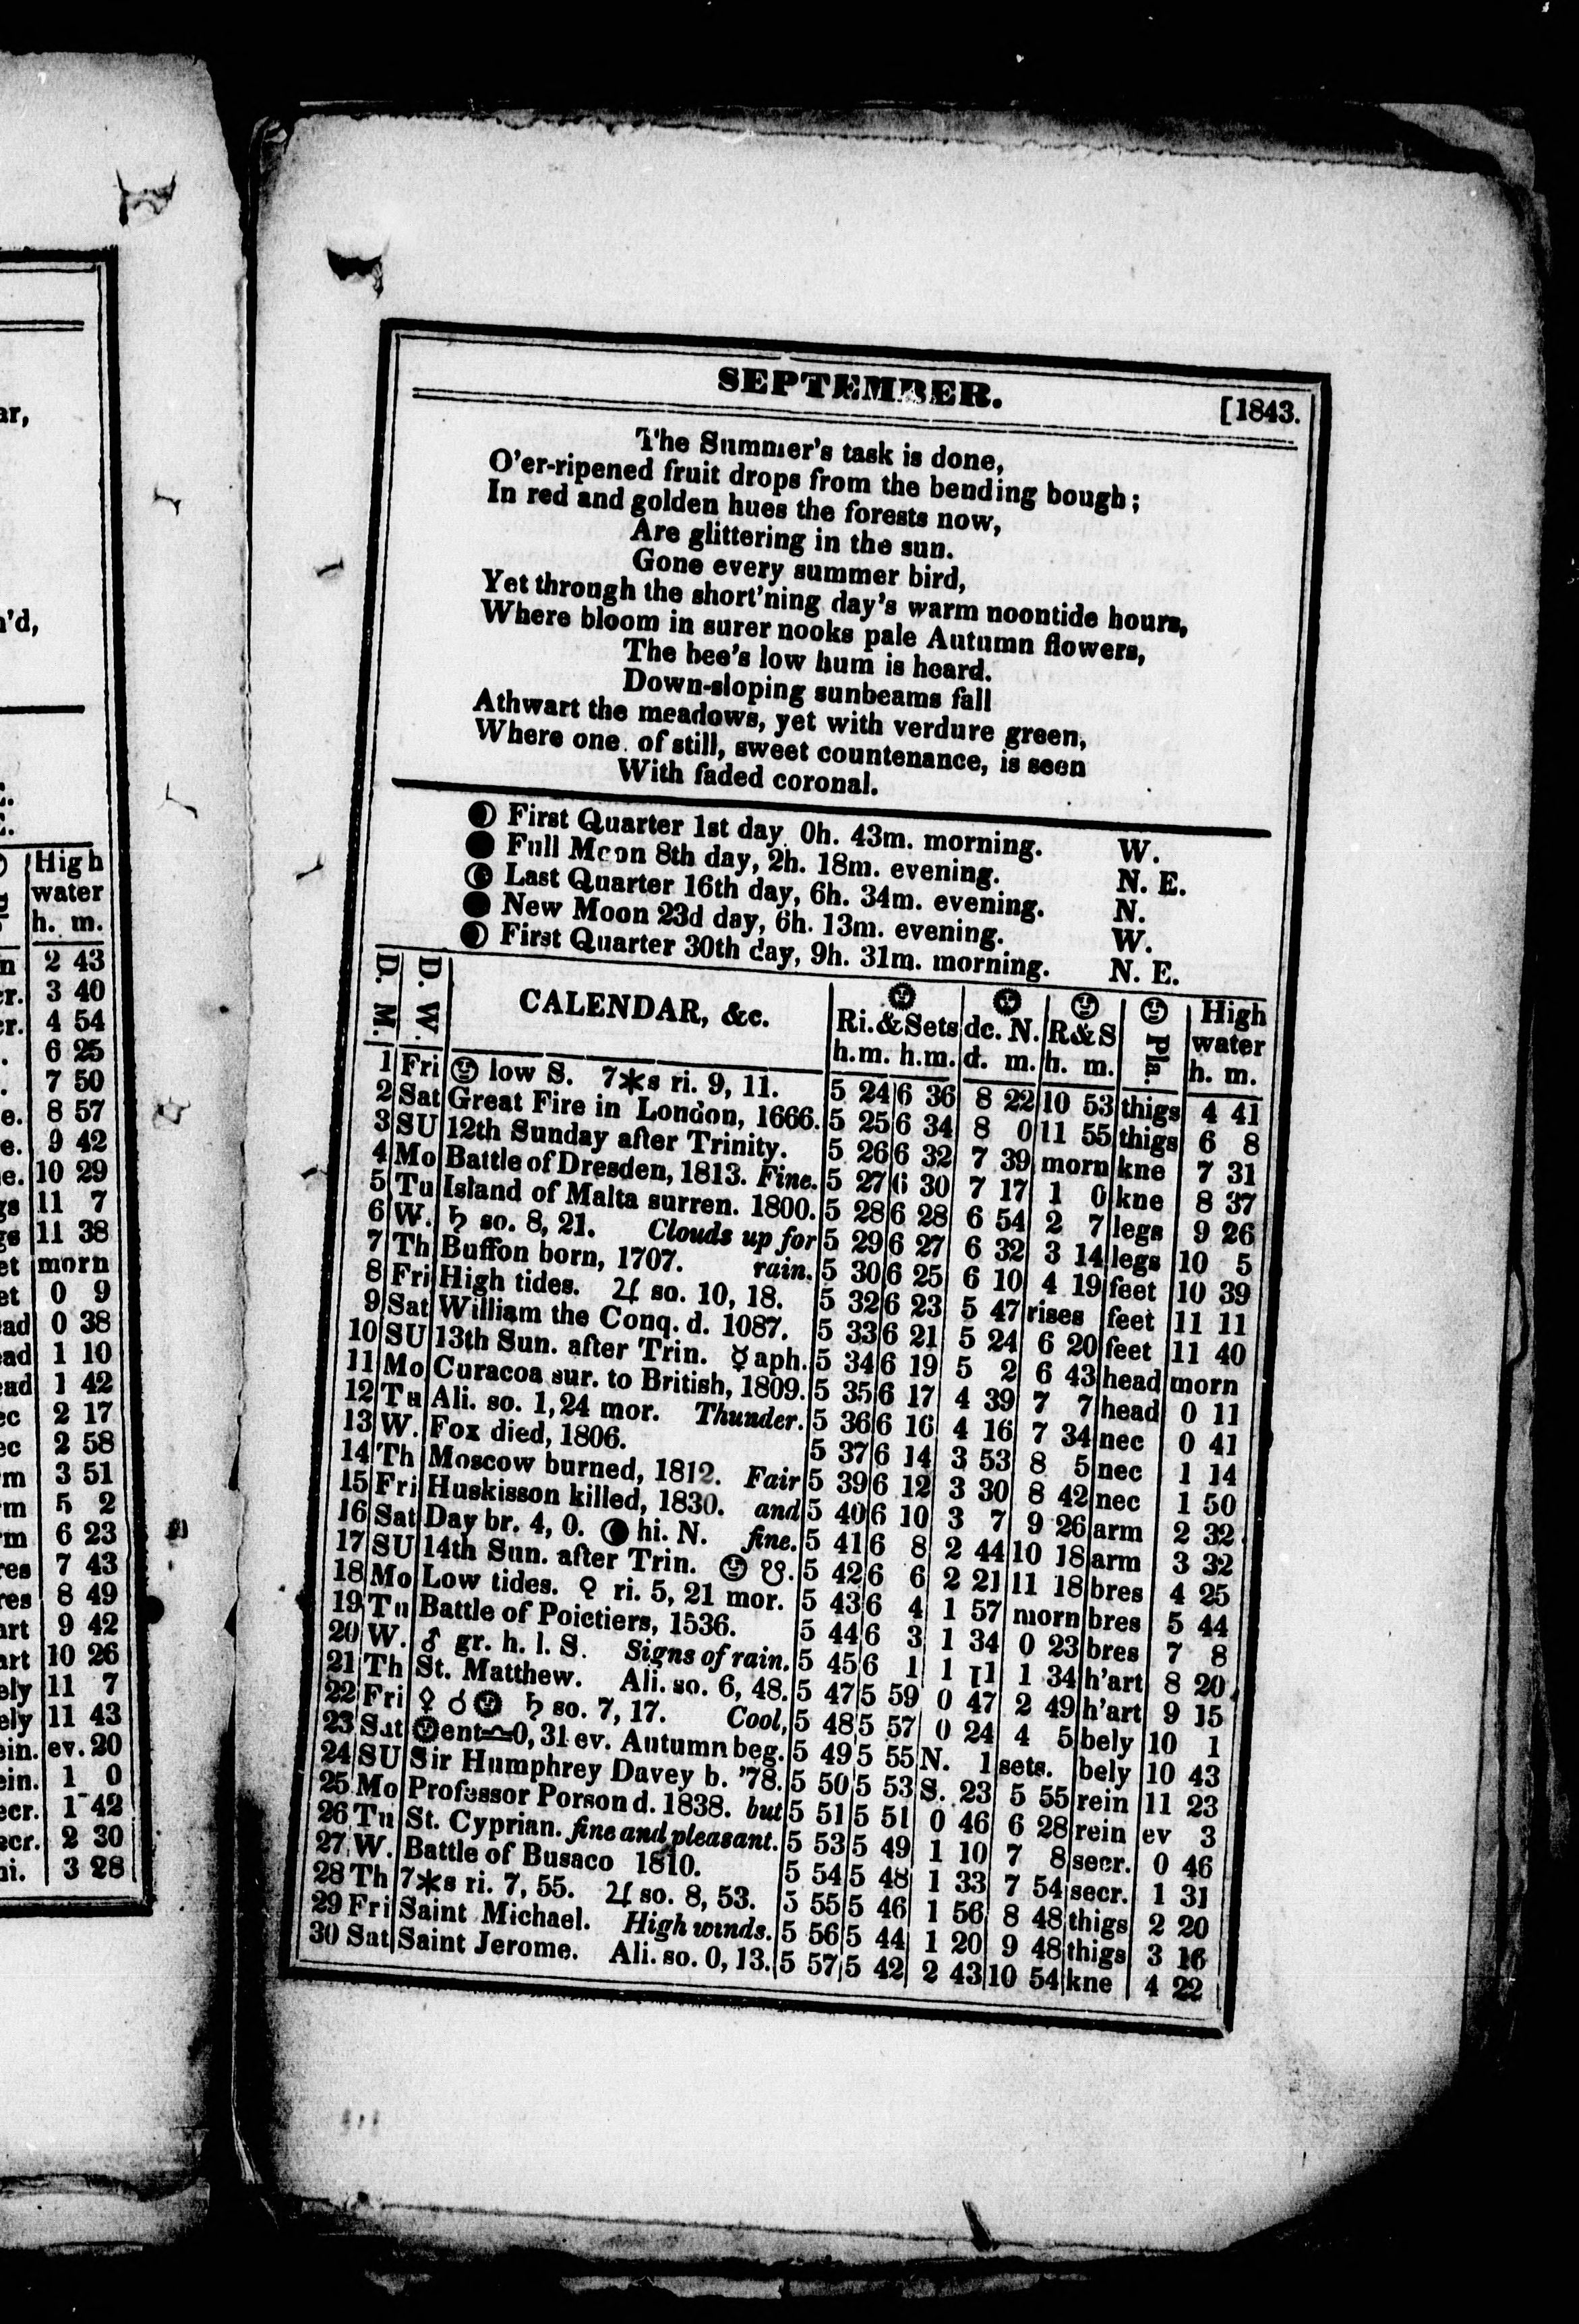 ar,
'd,
High
water
h. m.
n 2 43
r. 3 40
r. 4 54
. 6 25
. 7 50
e. 8 57
e. 9 42
e. 10 29
gs 11 7
gs 11 38
et morn
et 0 9
ad 0 38
ad 1 10
ad 1 42
ec 2 17
ec 2 58
m 3 51
m 5 2
m 6 23
res 7 43
res 8 49
art 9 42
art 10 26
ely 11 7
ely 11 43
ein. ev. 20
ein. 1 0
ecr. 1 42
ecr. 2 30
hi. 3 28
SEPTEMBER. [1843.
The Summer's task is done,
O'er-ripened fruit drops from the bending bough;
In red and golden hues the forests now,
Are glittering in the sun.
Gone every summer bird,
Yet through the short'ning day's warm noontide hours,
Where bloom in surer nooks pale Autumn flowers,
The bee's low hum is heard.
Down-sloping sunbeams fall
Athwart the meadows, yet with verdure green,
Where one of still, sweet countenance, is seen
With faded coronal.
First Quarter 1st day, 0h. 43m. morning. W.
Full Moon 8th day, 2h. 18m. evening. N. E.
Last Quarter 16th day, 6h. 34m. evening. N.
New Moon 23d day, 6h. 13m. evening. W.
First Quarter 30th day, 9h. 31m. morning. N. E.
D. M. D. W. CALENDAR, &c. Ri.&Sets dc. N. R&S Pla. High
water
h.m. h.m. d. m. h. m. h. m.
1 Fri ☺ low S. 7*s ri. 9, 11. 5 24 6 36 8 22 10 53 thigs 4 41
2 Sat Great Fire in London, 1666. 5 25 6 34 8 0 11 55 thigs 6 8
3 SU 12th Sunday after Trinity. 5 26 6 32 7 39 morn kne 7 31
4 Mo Battle of Dresden, 1813. Fine. 5 27 6 30 7 17 1 0 kne 8 37
5 Tu Island of Malta surren. 1800. 5 28 6 28 6 54 2 7 legs 9 26
6 W. ♄ so. 8, 21. Clouds up for 5 29 6 27 6 32 3 14 legs 10 5
7 Th Buffon born, 1707. rain. 5 30 6 25 6 10 4 19 feet 10 39
8 Fri High tides. ♃ so. 10, 18. 5 32 6 23 5 47 rises feet 11 11
9 Sat William the Conq. d. 1087. 5 33 6 21 5 24 6 20 feet 11 40
10 SU 13th Sun. after Trin. ☿ aph. 5 34 6 19 5 2 6 43 head morn
11 Mo Curacoa sur. to British, 1809. 5 35 6 17 4 39 7 7 head 0 11
12 Tu Ali. so. 1, 24 mor. Thunder. 5 36 6 16 4 16 7 34 nec 0 41
13 W. Fox died, 1806. 5 37 6 14 3 53 8 5 nec 1 14
14 Th Moscow burned, 1812. Fair 5 39 6 12 3 30 8 42 nec 1 50
15 Fri Huskisson killed, 1830. and 5 40 6 10 3 7 9 26 arm 2 32
16 Sat Day br. 4, 0. ☽ hi. N. fine. 5 41 6 8 2 44 10 18 arm 3 32
17 SU 14th Sun. after Trin. ☺ ☋. 5 42 6 6 2 21 11 18 bres 4 25
18 Mo Low tides. ♀ ri. 5, 21 mor. 5 43 6 4 1 57 morn bres 5 44
19 Tu Battle of Poictiers, 1536. 5 44 6 3 1 34 0 23 bres 7 8
20 W. ♂ gr. h. l. S. Signs of rain. 5 45 6 1 1 11 1 34 h'art 8 20
21 Th St. Matthew. Ali. so. 6, 48. 5 47 5 59 0 47 2 49 h'art 9 15
22 Fri ♀ ☌ ☉ ♄ so. 7, 17. Cool, 5 48 5 57 0 24 4 5 bely 10 1
23 Sat ☉ ent ♎ 0, 31 ev. Autumn beg. 5 49 5 55 N. 1 sets. bely 10 43
24 SU Sir Humphrey Davey b. '78. 5 50 5 53 S. 23 5 55 rein 11 23
25 Mo Professor Porson d. 1838. but 5 51 5 51 0 46 6 28 rein ev 3
26 Tu St. Cyprian. fine and pleasant. 5 53 5 49 1 10 7 8 secr. 0 46
27 W. Battle of Busaco 1810. 5 54 5 48 1 33 7 54 secr. 1 31
28 Th 7*s ri. 7, 55. ♃ so. 8, 53. 5 55 5 46 1 56 8 48 thigs 2 20
29 Fri Saint Michael. High winds. 5 56 5 44 1 20 9 48 thigs 3 16
30 Sat Saint Jerome. Ali. so. 0, 13. 5 57 5 42 2 43 10 54 kne 4 22